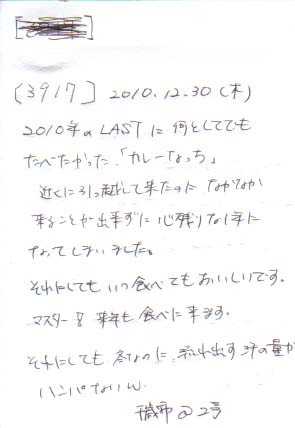 [3917] 2010.12.30(木)
2010年のLASTに何としてでも
たべたかった「カレーなっち」
近くに引っ越して来たのになかなか
来ることが出来ずに心残りな1年に
なってしまいました。
それにしてもいつ食べてもおいしいです。
マスター!! 来年も食べに来ます。
それにしても冬なのに流れ出す汗の量が
ハンパないん。
@2号